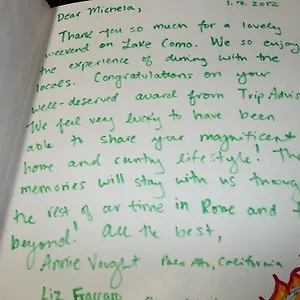 1.12.2012
Dear Michela,
Thank you so much for a lovely
weekend on Lake Como. We so enjoy
the experience of dining with the
locals. Congratulations on your
well-deserved award from Trip Advis
We feel very lucky to have been
able to share your magnificent
home and country lifestyle! Th
memories will stay with us throug
the rest of our time in Rome and
beyond! All the best,
Annie Vought Palo Alto, California
Liz